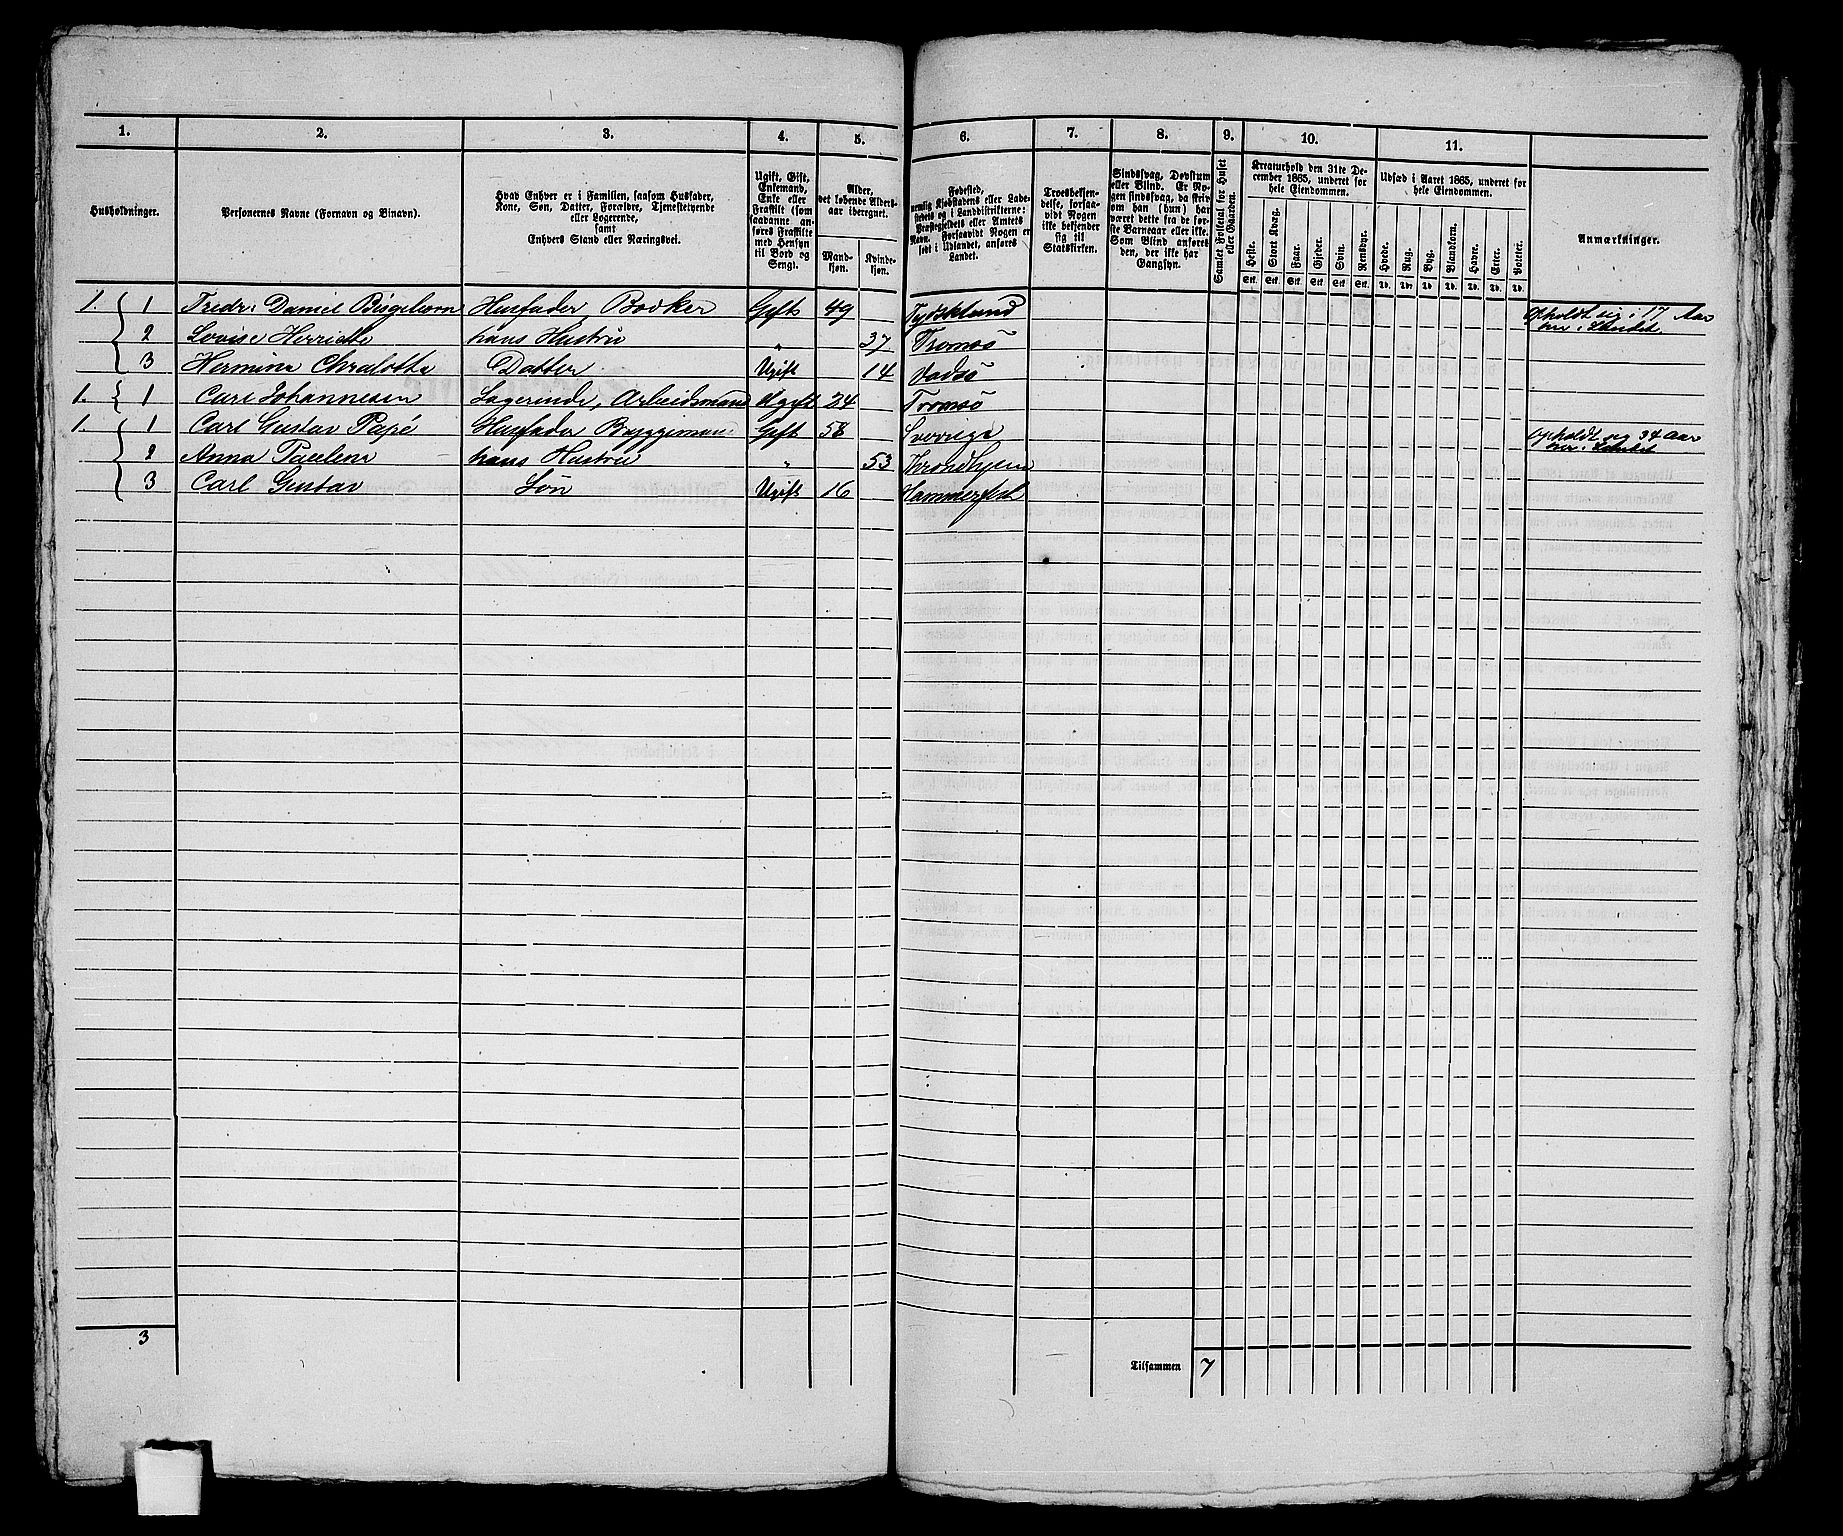 1. 2. 3. 4. 5. 6. 7. 8. 9. 10. 11.
Husholdninger.
Personernes Navne (Fornavn og Binavn).
Hvad Enhver er i Familien, saasom Husfader,
Kone, Søn, Datter, Forældre, Tjenestetyende
eller Logerende,
samt
Enhvers Stand eller Næringsvei.
Ugift, Gift,
Enkemand,
Enke eller
Fraskilt (som
saadanne an-
føres Fraskilte
med Hensyn
til Bord og
Seng).
Alder,
det løbende Alders-
aar iberegnet.
Mand-
kjøn.
Kvinde-
kjøn.
Fødested,
nemlig Kjøbstadens eller Lade-
stedets og i Landdistrikterne:
Præstegjeldets eller Amtets
Navn. Forsaavidt Nogen er
født i Udlandet, anføres
Landet.
Troesbekjen-
delse, forsaa-
vidt Nogen
ikke bekjender
sig til
Statskirken.
Sindssvag, Døvstum
eller Blind. Er No-
gen sindssvag, da skri-
ves om han (hun) har
været dette fra de før-
ste Barneaar eller ikke.
Som Blind anføres
den, der ikke har
Gangsyn.
Samlet Folketal for Huset
eller Gaarden.
Kreaturhold den 31te De-
cember 1865, underet for
hele Eiendommen.
Heste. Stort Kvæg. Faar. Gjeder. Svin. Rensdyr.
Stk. Stk. Stk. Stk. Stk. Stk.
Udsæd i Aaret 1865, underet for
hele Eiendommen.
Hvede. Rug. Byg. Blandkorn. Havre. Erter. Poteter.
Td. Td. Td. Td. Td. Td. Td.
Anmærkninger.
1. 1 Fredr: Daniel Husfader Gift 49 Tydskland Opholdt sig i 17 Aar her i Landet
2 Lovise Henriette hans Hustru " 37 Tromsø
3 Hermina Chralotta Datter Ugift 14 Vadsø
1. 1 Carl Johannesen Logerende, Arbeidsmand Ugift 24 Tromsø
1. 1 Carl Gustav Papé Husfader Byggemand Gift 58 Sverrige Opholdt sig 34 Aar her i Landet
2 Anna Paulena hans Hustru " 53 Throndhjem
3 Carl Gustav Søn Ugift 16 Hammerfest
3
Tilsammen 7